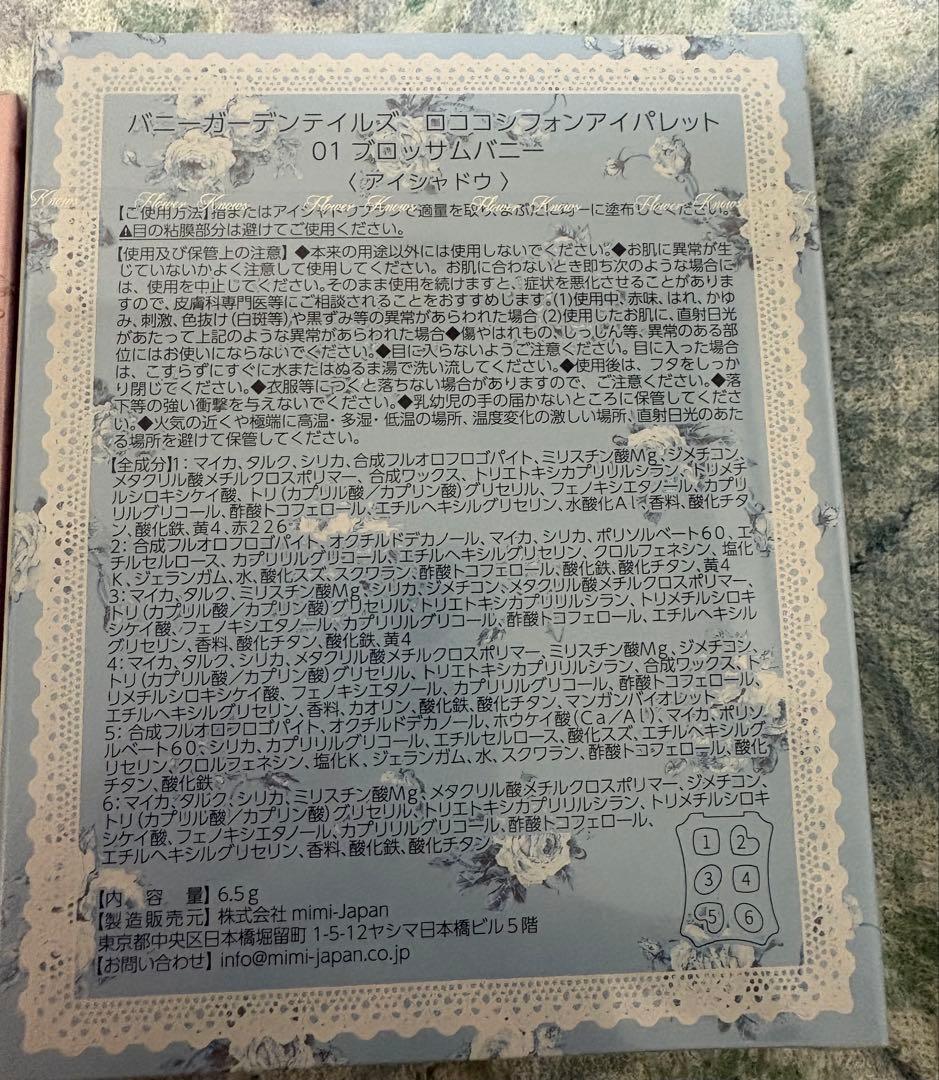 バニーガーデンテイルズ ロココシフォンアイパレット
01 ブロッサムバニー
〈アイシャドウ〉
Flower Knows Flower Knows Flower Knows Flower Knows Flower Knows
【ご使用方法】指またはアイシャドウブラシで適量を取り、まぶたに均一に塗布してください。
⚠目の粘膜部分は避けてご使用ください。
【使用及び保管上の注意】◆本来の用途以外には使用しないでください。◆お肌に異常が生
じていないかよく注意して使用してください。お肌に合わないとき即ち次のような場合に
は、使用を中止してください。そのまま使用を続けますと、症状を悪化させることがありま
すので、皮膚科専門医等にご相談されることをおすすめします。(1)使用中、赤味、はれ、かゆ
み、刺激、色抜け(白斑等)や黒ずみ等の異常があらわれた場合 (2)使用したお肌に、直射日光
があたって上記のような異常があらわれた場合◆傷やはれもの、しっしん等、異常のある部
位にはお使いにならないでください。◆目に入らないようご注意ください。目に入った場合
は、こすらずにすぐに水またはぬるま湯で洗い流してください。◆使用後は、フタをしっか
り閉じてください。◆衣服等につくと落ちない場合がありますので、ご注意ください。◆落
下等の強い衝撃を与えないでください。◆乳幼児の手の届かないところに保管してくださ
い。◆火気の近くや極端に高温・多湿・低温の場所、温度変化の激しい場所、直射日光のあた
る場所を避けて保管してください。
【全成分】1：マイカ、タルク、シリカ、合成フルオロフロゴパイト、ミリスチン酸Mg、ジメチコン、
メタクリル酸メチルクロスポリマー、合成ワックス、トリエトキシカプリリルシラン、トリメチ
ルシロキシケイ酸、トリ(カプリル酸／カプリン酸)グリセリル、フェノキシエタノール、カプリ
リルグリコール、酢酸トコフェロール、エチルヘキシルグリセリン、水酸化Al、香料、酸化チタ
ン、酸化鉄、黄4、赤226
2：合成フルオロフロゴパイト、オクチルドデカノール、マイカ、シリカ、ポリソルベート60、エ
チルセルロース、カプリリルグリコール、エチルヘキシルグリセリン、クロルフェネシン、塩化
K、ジェランガム、水、酸化スズ、スクワラン、酢酸トコフェロール、酸化鉄、酸化チタン、黄4
3：マイカ、タルク、ミリスチン酸Mg、シリカ、ジメチコン、メタクリル酸メチルクロスポリマー、
トリ(カプリル酸／カプリン酸)グリセリル、トリエトキシカプリリルシラン、トリメチルシロキ
シケイ酸、フェノキシエタノール、カプリリルグリコール、酢酸トコフェロール、エチルヘキシル
グリセリン、香料、酸化チタン、酸化鉄、黄4
4：マイカ、タルク、シリカ、メタクリル酸メチルクロスポリマー、ミリスチン酸Mg、ジメチコン、
トリ(カプリル酸／カプリン酸)グリセリル、トリエトキシカプリリルシラン、合成ワックス、ト
リメチルシロキシケイ酸、フェノキシエタノール、カプリリルグリコール、酢酸トコフェロール、
エチルヘキシルグリセリン、香料、カオリン、酸化鉄、酸化チタン、マンガンバイオレット
5：合成フルオロフロゴパイト、オクチルドデカノール、ホウケイ酸(Ca/Al)、マイカ、ポリソ
ルベート60、シリカ、カプリリルグリコール、エチルセルロース、酸化スズ、エチルヘキシルグ
リセリン、クロルフェネシン、塩化K、ジェランガム、水、スクワラン、酢酸トコフェロール、酸化
チタン、酸化鉄
6：マイカ、タルク、シリカ、ミリスチン酸Mg、メタクリル酸メチルクロスポリマー、ジメチコン、
トリ(カプリル酸／カプリン酸)グリセリル、トリエトキシカプリリルシラン、トリメチルシロキ
シケイ酸、フェノキシエタノール、カプリリルグリコール、酢酸トコフェロール、
エチルヘキシルグリセリン、香料、酸化鉄、酸化チタン
1 2
3 4
5 6
【内 容 量】6.5g
【製造販売元】株式会社 mimi-Japan
東京都中央区日本橋堀留町 1-5-12ヤシマ日本橋ビル５階
【お問い合わせ】info@mimi-japan.co.jp